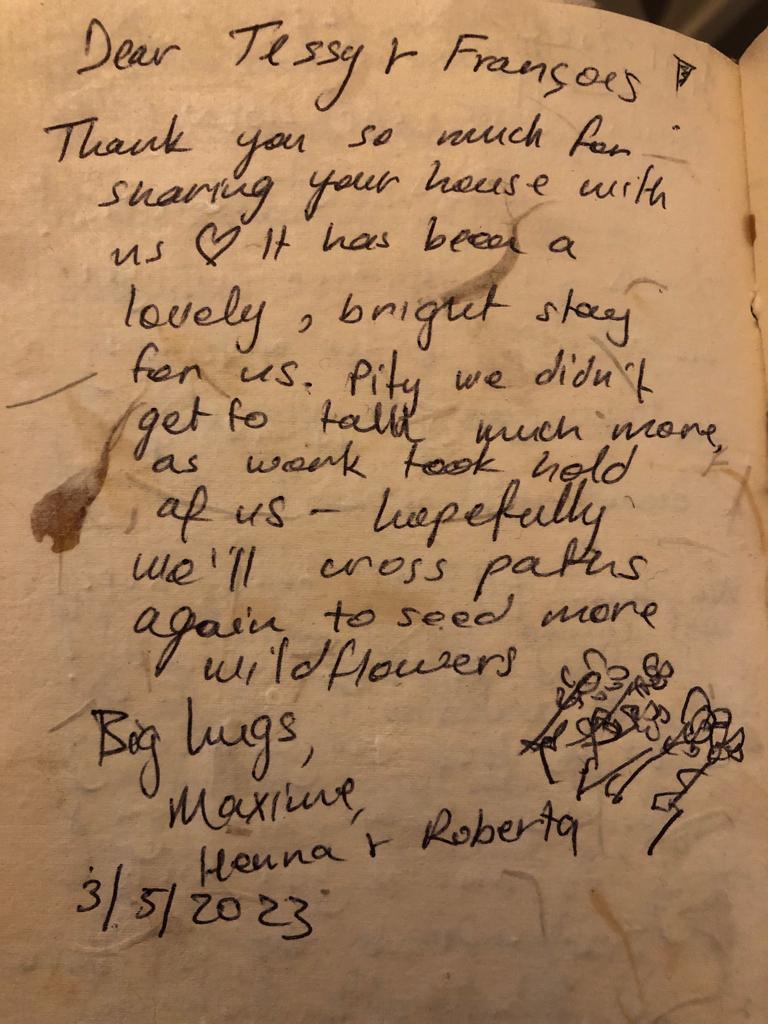 Dear Tessy + François
Thank you so much for
sharing your house with
us ♡ It has been a
lovely, bright stay
for us. Pity we didn't
get to talk much more,
as work took hold
of us – hopefully
we'll cross paths
again to seed more
wildflowers
Big hugs,
Maxime,
Henna + Roberta
3/5/2023